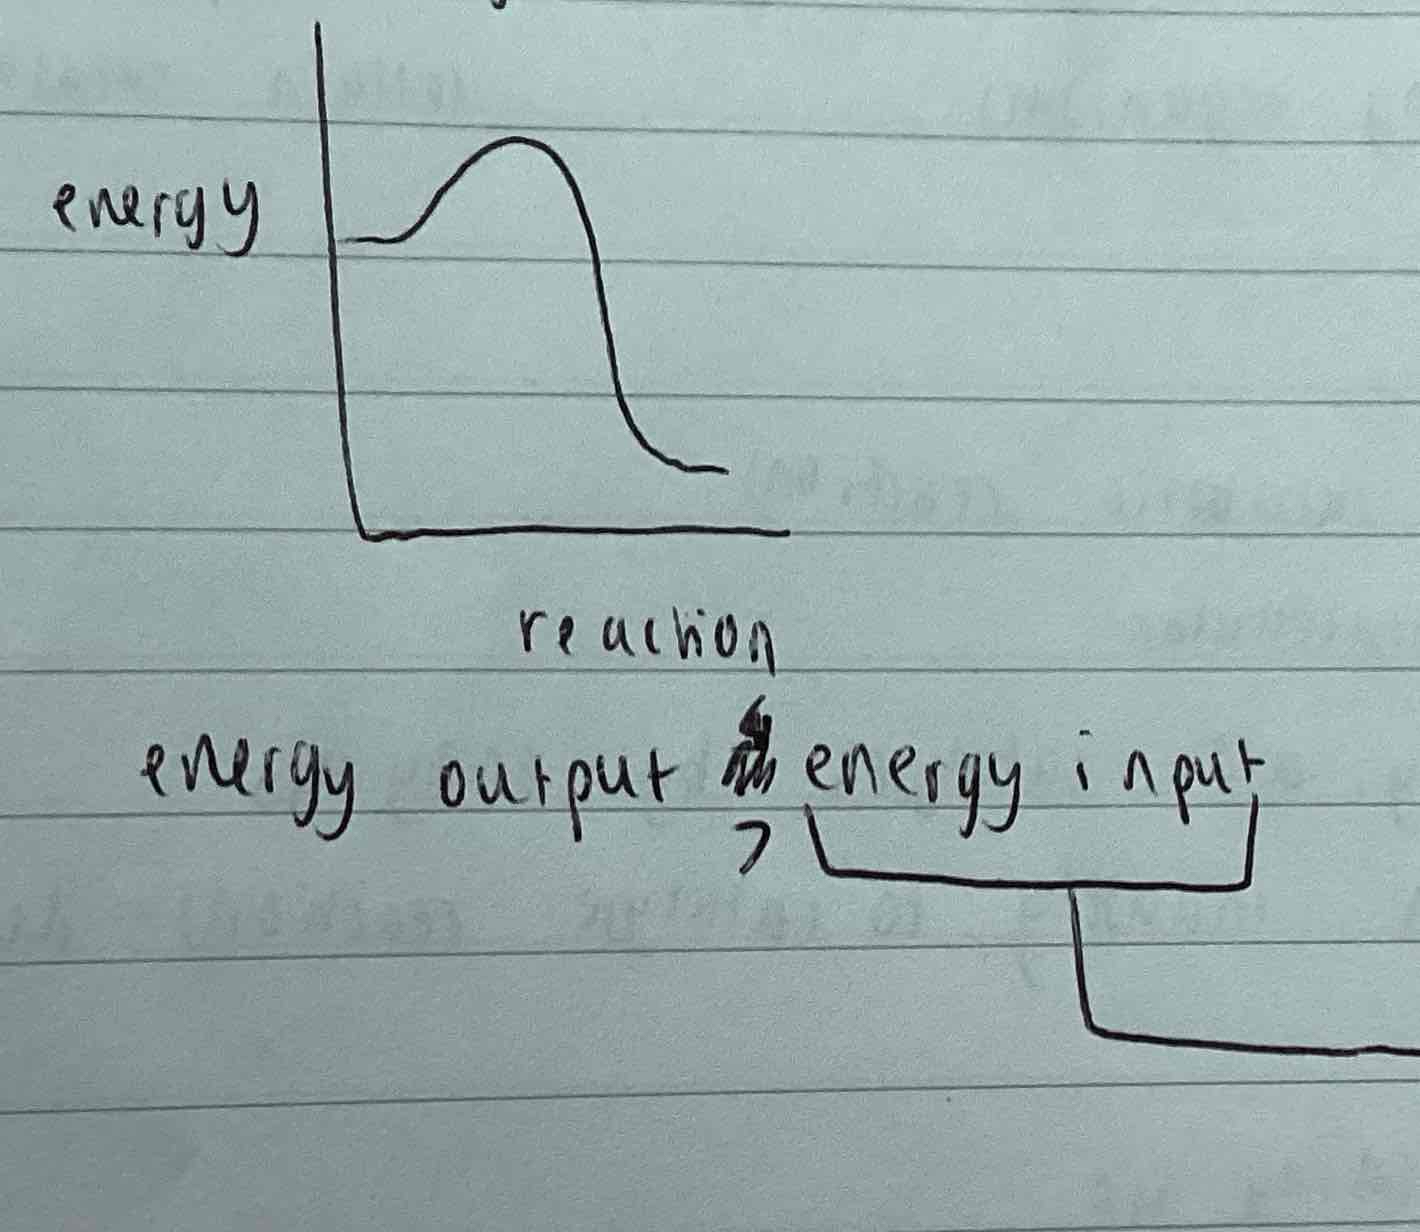 energy
reaction
energy output > energy input